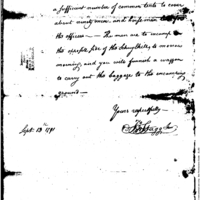 a sufficient number of common tents to cover
about ninety men, and
the officers — The men are to encamp
the opposite side of the Schuylkill, to morrow
morning, and you will furnish a waggon
to carry out the baggage to the encamping
ground —
Yours respectfully —
Sept. 13th 1791